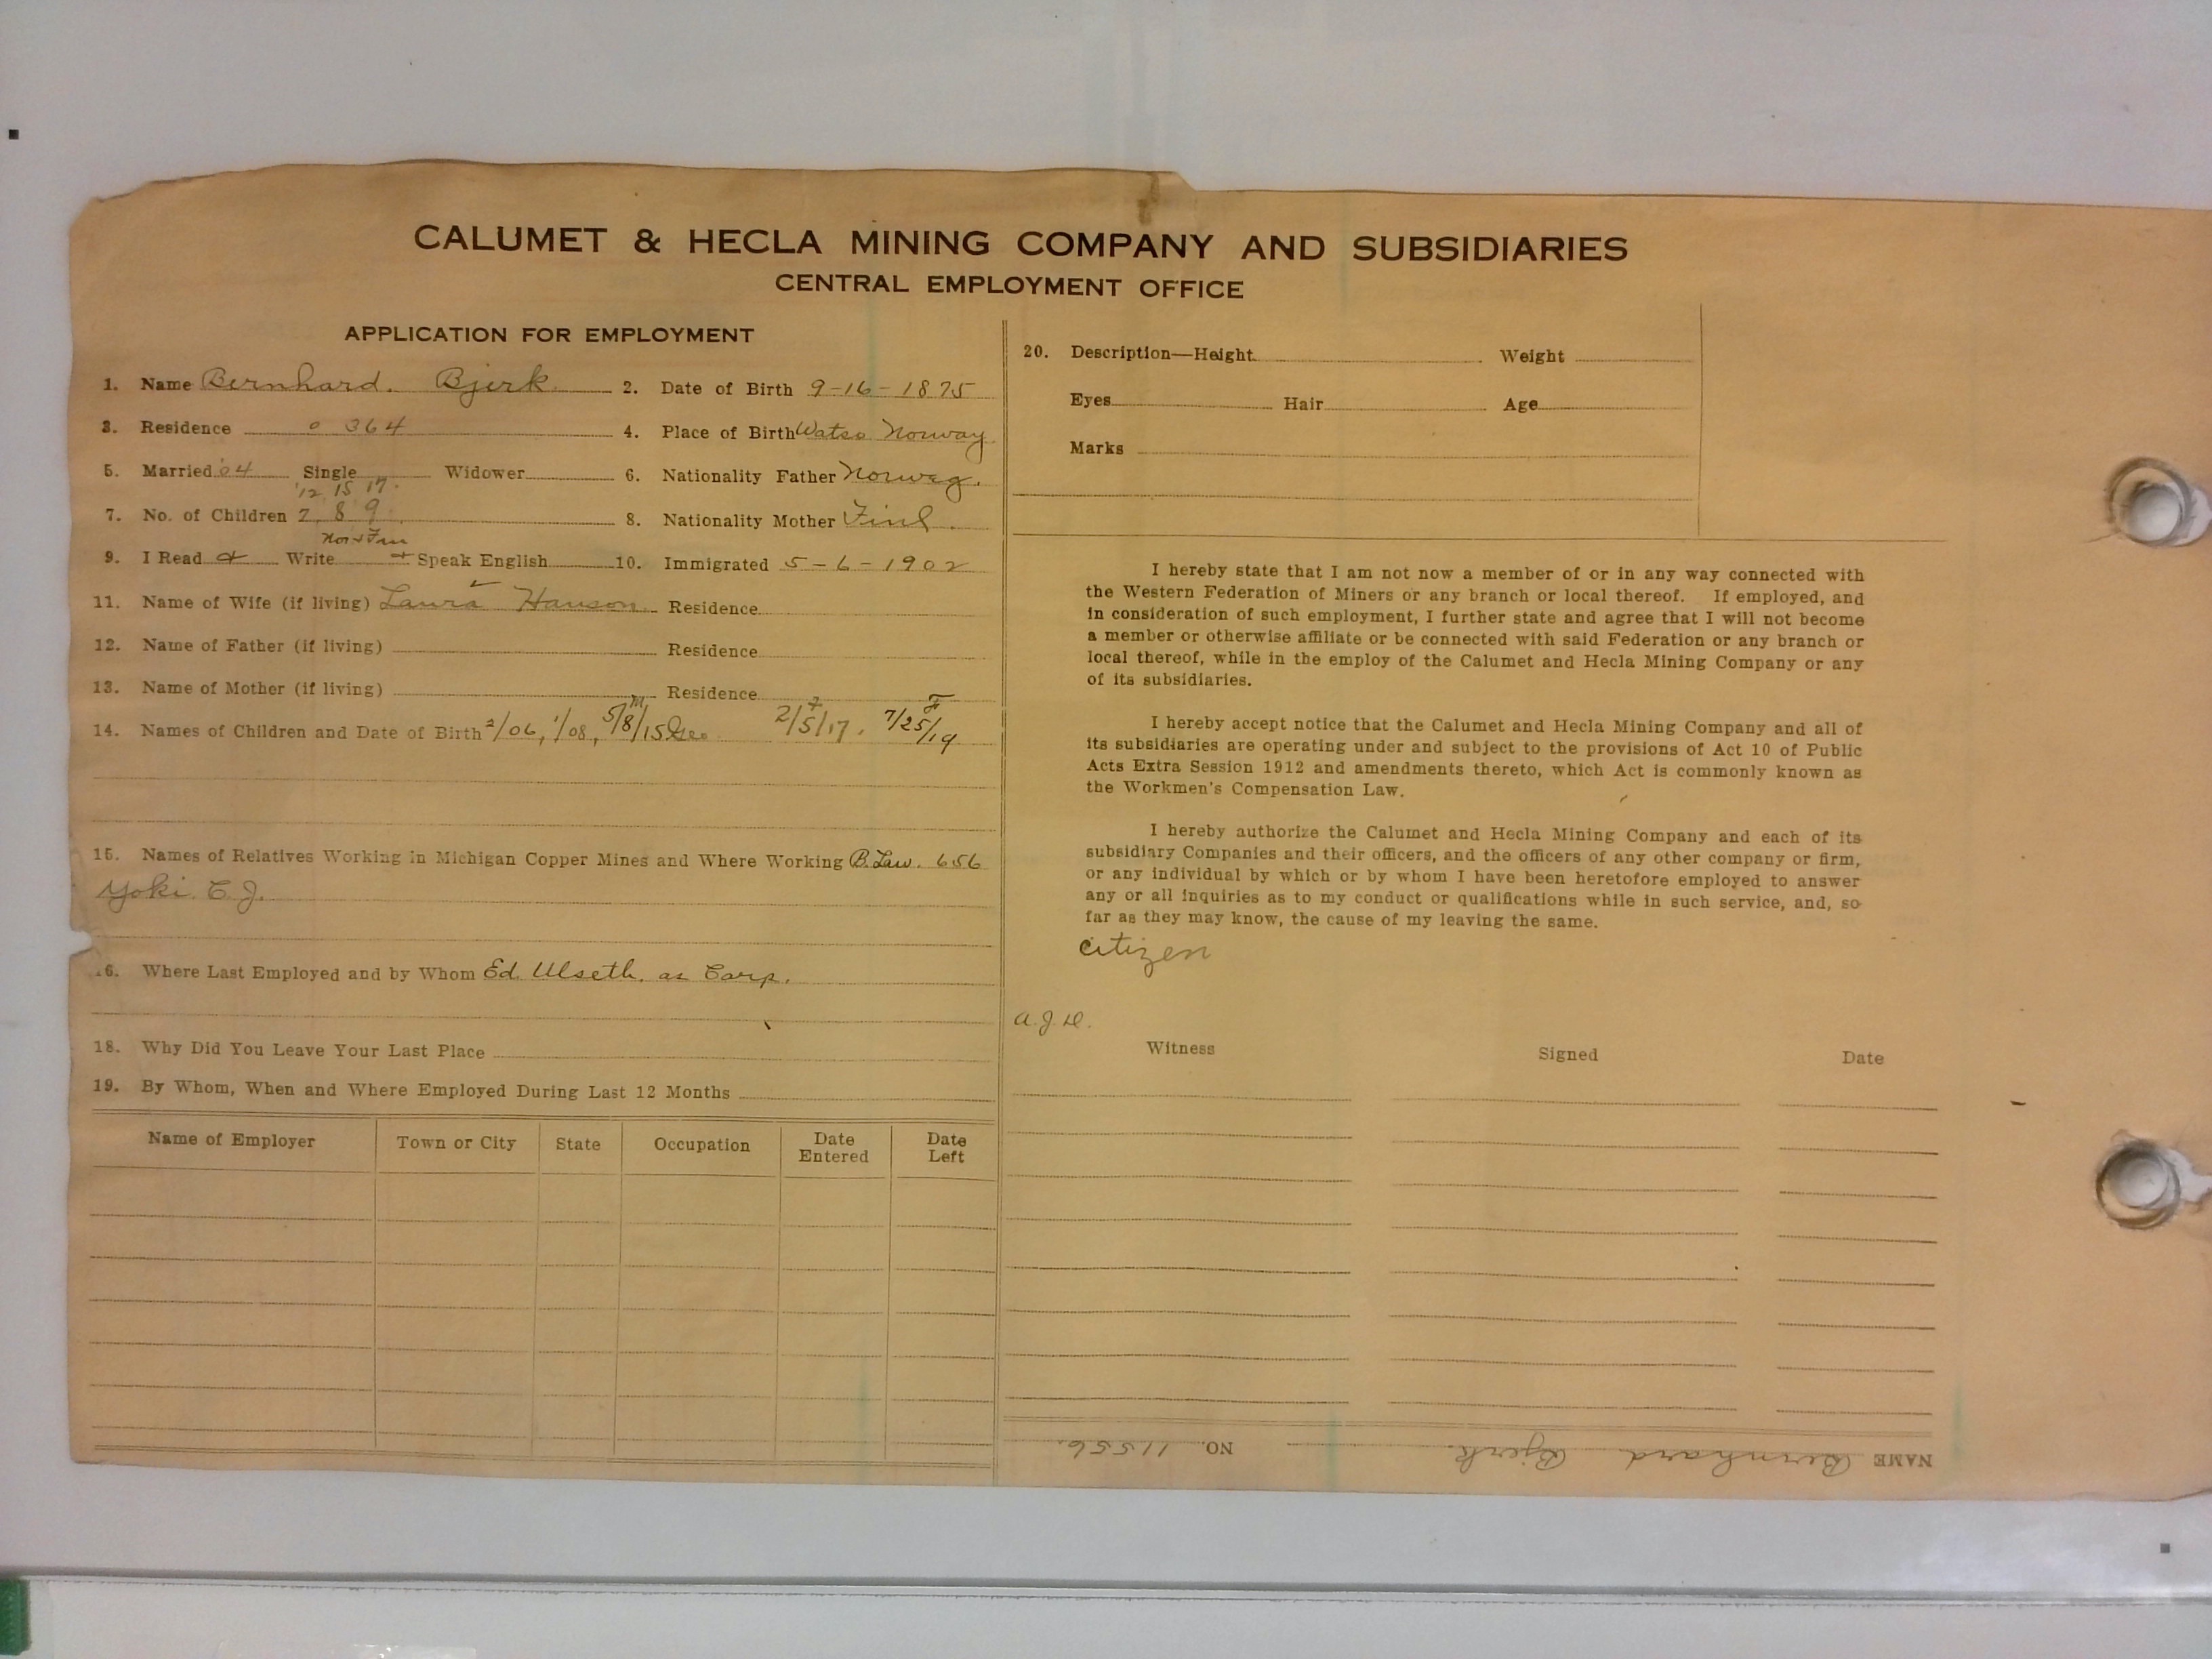 CALUMET & HECLA MINING COMPANY AND SUBSIDIARIES
CENTRAL EMPLOYMENT OFFICE
APPLICATION FOR EMPLOYMENT
1. Name Bernhard. Bjerk 2. Date of Birth 9-16-1875
3. Residence 0 364 4. Place of Birth Watso Norway
5. Married '04 Single Widower 6. Nationality Father Norweg.
'12 15 17.
7. No. of Children 7, 8 9 8. Nationality Mother Finl.
Nor & Finn
9. I Read & Write & Speak English 10. Immigrated 5-6-1902
11. Name of Wife (if living) Laura Hanson Residence
12. Name of Father (if living) Residence
13. Name of Mother (if living) Residence
M F F
14. Names of Children and Date of Birth 2/06, 1/08, 5/8/15 Geo. 2/5/17. 7/25/19
15. Names of Relatives Working in Michigan Copper Mines and Where Working B. Law. 656
Yoki C. J.
16. Where Last Employed and by Whom Ed. Ulseth. as Carp.
18. Why Did You Leave Your Last Place
19. By Whom, When and Where Employed During Last 12 Months
Name of Employer Town or City State Occupation Date Entered Date Left
20. Description—Height Weight
Eyes Hair Age
Marks
I hereby state that I am not now a member of or in any way connected with
the Western Federation of Miners or any branch or local thereof. If employed, and
in consideration of such employment, I further state and agree that I will not become
a member or otherwise affiliate or be connected with said Federation or any branch or
local thereof, while in the employ of the Calumet and Hecla Mining Company or any
of its subsidiaries.
I hereby accept notice that the Calumet and Hecla Mining Company and all of
its subsidiaries are operating under and subject to the provisions of Act 10 of Public
Acts Extra Session 1912 and amendments thereto, which Act is commonly known as
the Workmen's Compensation Law.
I hereby authorize the Calumet and Hecla Mining Company and each of its
subsidiary Companies and their officers, and the officers of any other company or firm,
or any individual by which or by whom I have been heretofore employed to answer
any or all inquiries as to my conduct or qualifications while in such service, and, so
far as they may know, the cause of my leaving the same.
citizen
A. J. D.
Witness Signed Date
NAME Bernhard Bjerk. NO. 11556.